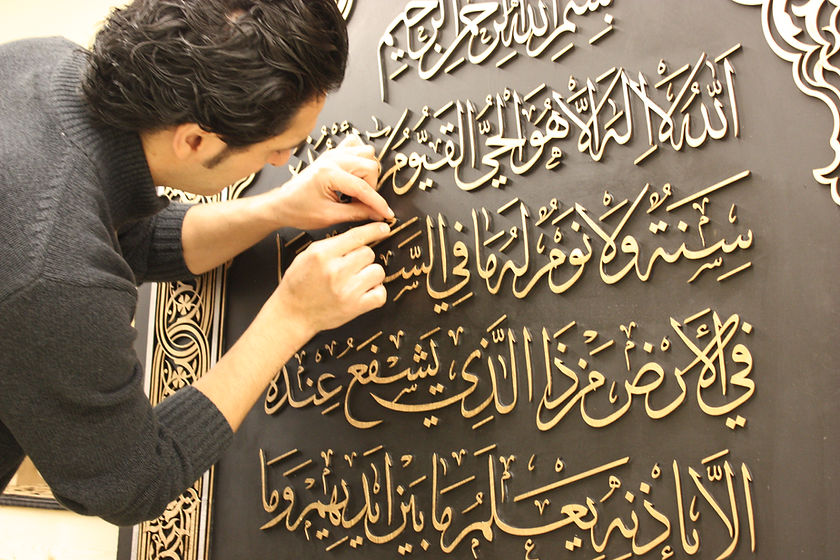 بسم الله الرحمن الرحيم
الله لا اله الا هو الحي القيوم لا
سنة ولا نوم له ما في
في الأرض من ذا الذي يشفع عنده
الا بإذنه يعلم ما بين ايديهم وما